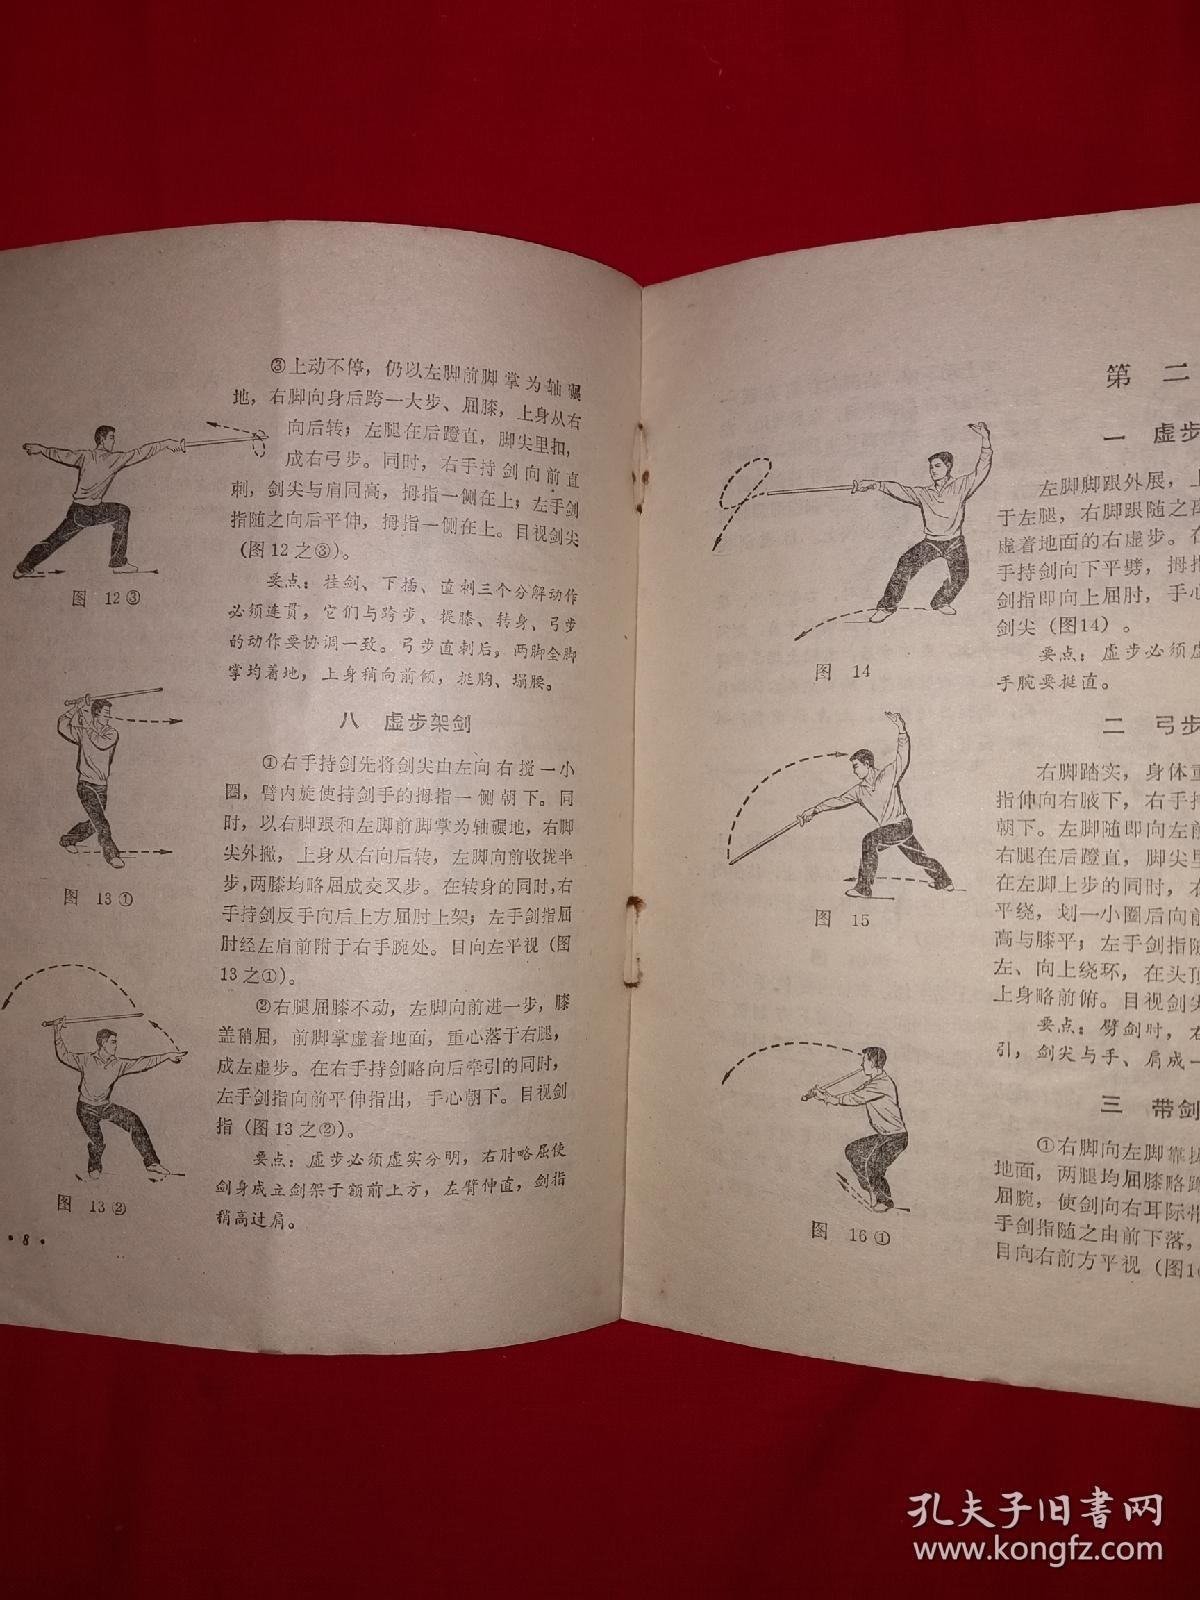 ③上动不停，仍以左脚前脚掌为轴碾
地，右脚向身后跨一大步、屈膝，上身从右
向后转；左腿在后蹬直，脚尖里扣，
成右弓步。同时，右手持剑向前直
刺，剑尖与肩同高，拇指一侧在上；左手剑
指随之向后平伸，拇指一侧在上。目视剑尖
（图12之③）。
图 12③
要点：挂剑、下插、直刺三个分解动作
必须连贯，它们与跨步、提膝、转身、弓步
的动作要协调一致。弓步直刺后，两脚全脚
掌均着地，上身稍向前倾，挺胸、塌腰。
八 虚步架剑
①右手持剑先将剑尖由左向右搅一小
圈，臂内旋使持剑手的拇指一侧朝下。同
时，以右脚跟和左脚前脚掌为轴碾地，右脚
尖外撇，上身从右向后转，左脚向前收拢半
步，两膝均略屈成交叉步。在转身的同时，右
手持剑反手向后上方屈肘上架；左手剑指屈
肘经左肩前附于右手腕处。目向左平视（图
13之①）。
图 13①
②右腿屈膝不动，左脚向前进一步，膝
盖稍屈，前脚掌虚着地面，重心落于右腿，
成左虚步。在右手持剑略向后牵引的同时，
左手剑指向前平伸指出，手心朝下。目视剑
指（图13之②）。
要点：虚步必须虚实分明，右肘略屈使
剑身成立剑架于额前上方，左臂伸直，剑指
稍高过肩。
图 13②
• 8 •
第 二
一 虚步
左脚脚跟外展，上
于左腿，右脚跟随之离
虚着地面的右虚步。在
手持剑向下平劈，拇指
剑指即向上屈肘，手心
剑尖（图14）。
要点：虚步必须虚
手腕要挺直。
图 14
二 弓步
右脚踏实，身体重
指伸向右腋下，右手持
朝下。左脚随即向左前
右腿在后蹬直，脚尖里
在左脚上步的同时，右
平绕，划一小圈后向前
高与膝平；左手剑指随
左、向上绕环，在头顶
上身略前俯。目视剑尖
要点：劈剑时，右
引，剑尖与手、肩成一
图 15
三 带剑
①右脚向左脚靠拢
地面，两腿均屈膝略蹲
屈腕，使剑向右耳际带
手剑指随之由前下落，
目向右前方平视（图16
图 16①
孔夫子旧书网
www.kongfz.com